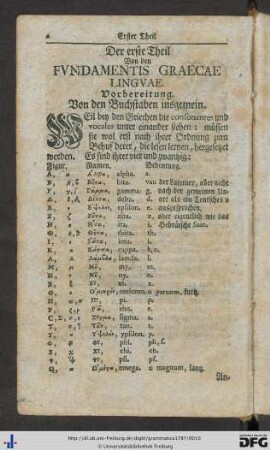 Erster Theil
Der erste Theil
Von den
FVNDAMENTIS GRAECAE
LINGVAE.
Vorbereitung.
Von den Buchstaben insgemein.
WEil bey den Griechen die consonantes und
vocales unter einander stehen: müssen
sie wol erst nach ihrer Ordnung zum
Behuf derer, die lesen lernen, hergesetzet
werden. Es sind ihrer vier und zwantzig:
Figur. Namen. Bedeutung.
Α, α Ἄλφα, alpha. a.
Β, β, ϐ Βῆτα, bita. von der Lateiner, aber nicht
Γ, γ, Γάμμα, gamma. g. nach der gemeinen
Δ, δ, Δέλτα, delta. d. ort als ein Teutsches
Ε, ε Ἐψιλόν, epsilon. e. ausgesprochen.
Ζ, ζ Ζῆτα, zeta. z. oder eigentlich wie das
Η, η Ἦτα, ita. i. Hebräische Sain.
Θ, θ Θῆτα, theta. th.
Ι, ι Ἰῶτα, iota. i.
Κ, κ Κάππα, kappa. k.
Λ, λ Λάμβδα, lamda. l.
Μ, μ Μῦ, my. m.
Ν, ν Νῦ, ny. n.
Ξ, ξ Ξῖ, xi. x.
Ο, ο Ὀμικρόν, omicron. o parvum, kurtz.
Π, π Πῖ, pi. p.
Ρ, ρ Ῥῶ, rho. r.
C, Σ, σ, ς Σίγμα, sigma. s.
Τ, τ Ταῦ, tau. t.
Υ, υ Ὑψιλόν, ypsilon. y.
Φ, φ Φῖ, phi. ph, f.
Χ, χ Χῖ, chi. ch.
Ψ, ψ Ψῖ, psi. pf.
Ω, ω Ὠμέγα, omega. o magnum, lang.
An-
http://dl.ub.uni-freiburg.de/diglit/grammatica1787/0010
© Universitätsbibliothek Freiburg
DFG